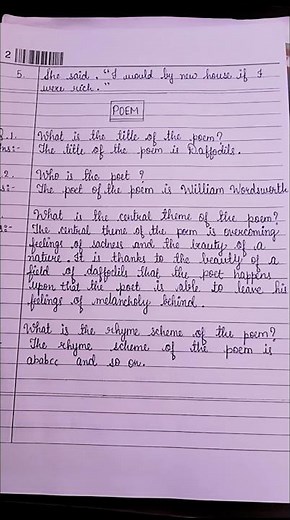 2
5. She said. "I would by new house if I
were rich."
POEM
1. What is the title of the poem?
ns:- The title of the poem is Daffodils.
2. Who is the poet ?
s:- The poet of the poem is William Wordsworth
What is the central theme of the poem?
s:- The central theme of the poem is overcoming
feelings of sadness and the beauty of a
nature. It is thanks to the beauty of a
field of daffodils that the poet happens
upon that the poet is able to leave his
feelings of melancholy behind.
What is the rhyme scheme of the poem?
The rhyme scheme of the poem is
ababcc and so on.